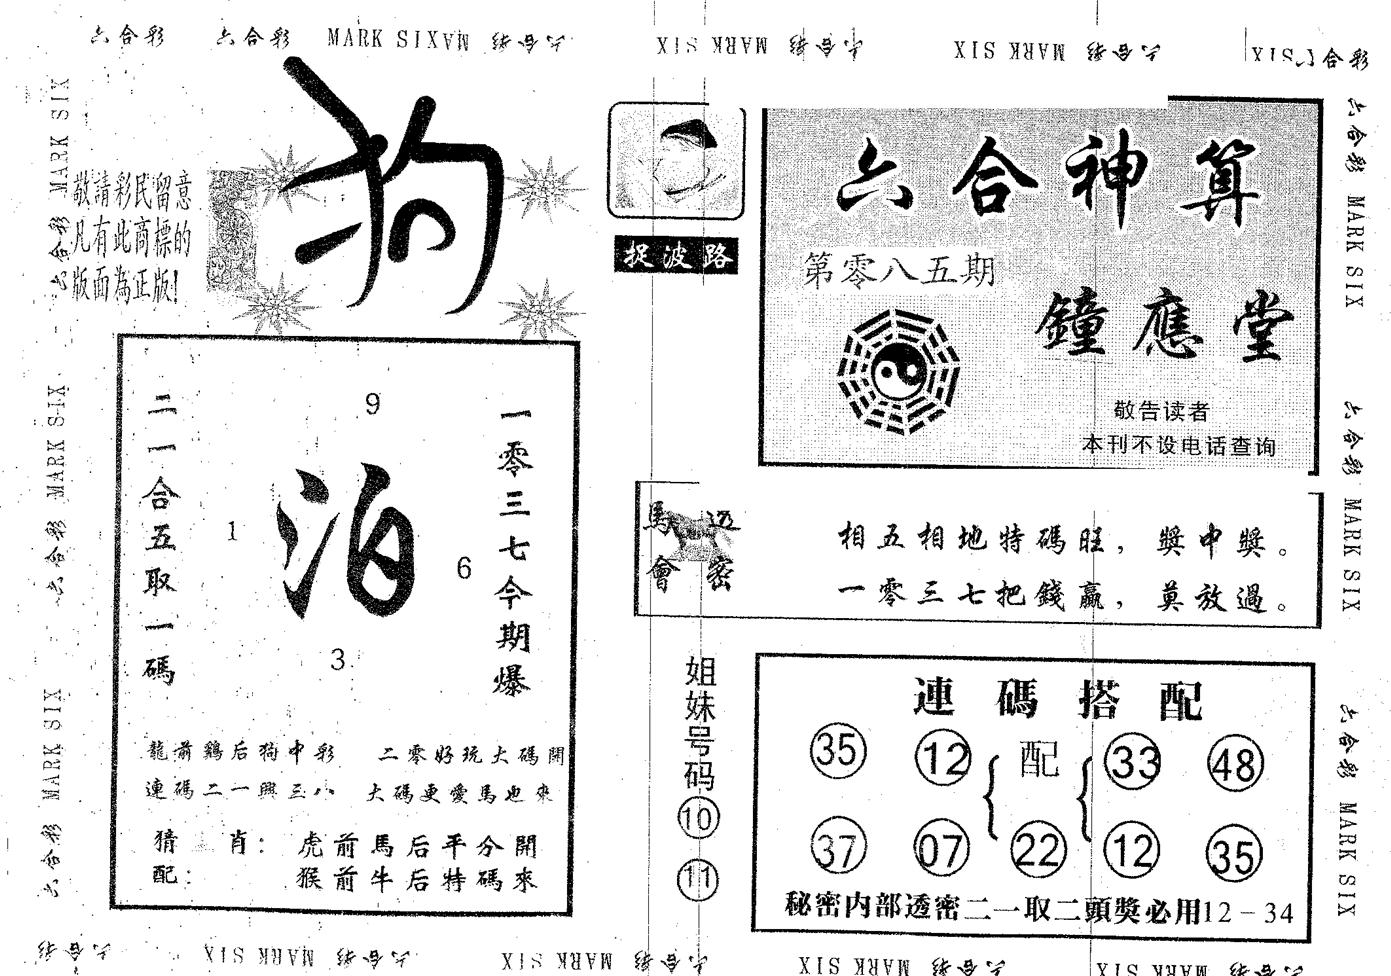 六合彩 六合彩 MARK SIX MARK 六合彩 MARK SIX 六合彩 MARK SIX 六合彩
狗
敬請彩民留意
凡有此商標的
版面為正版!
捉波路
六合神算
第零八五期
鐘應堂
敬告读者
本刊不设电话查询
二一合五取一碼
9
1
泊
6
3
一零三七今期爆
龍前鷄后狗中彩 二零好玩大碼開
連碼二一興三八 大碼更愛馬也來
猜肖: 虎前馬后平分開
配: 猴前牛后特碼來
馬會
透密
相五相地特碼旺，獎中獎。
一零三七把錢贏，莫放過。
姐妹号码
10
11
連碼搭配
35 12 配 33 48
37 07 22 12 35
秘密内部透密二一取二頭獎必用12-34
六合彩 MARK SIX 六合彩 MARK SIX 六合彩 MARK SIX
六合彩 MARK SIX 六合彩 MARK SIX 六合彩 MARK SIX
六合彩 六合彩 MARK SIX 六合彩 MARK SIX 六合彩 MARK SIX 六合彩 MARK SIX 六合彩